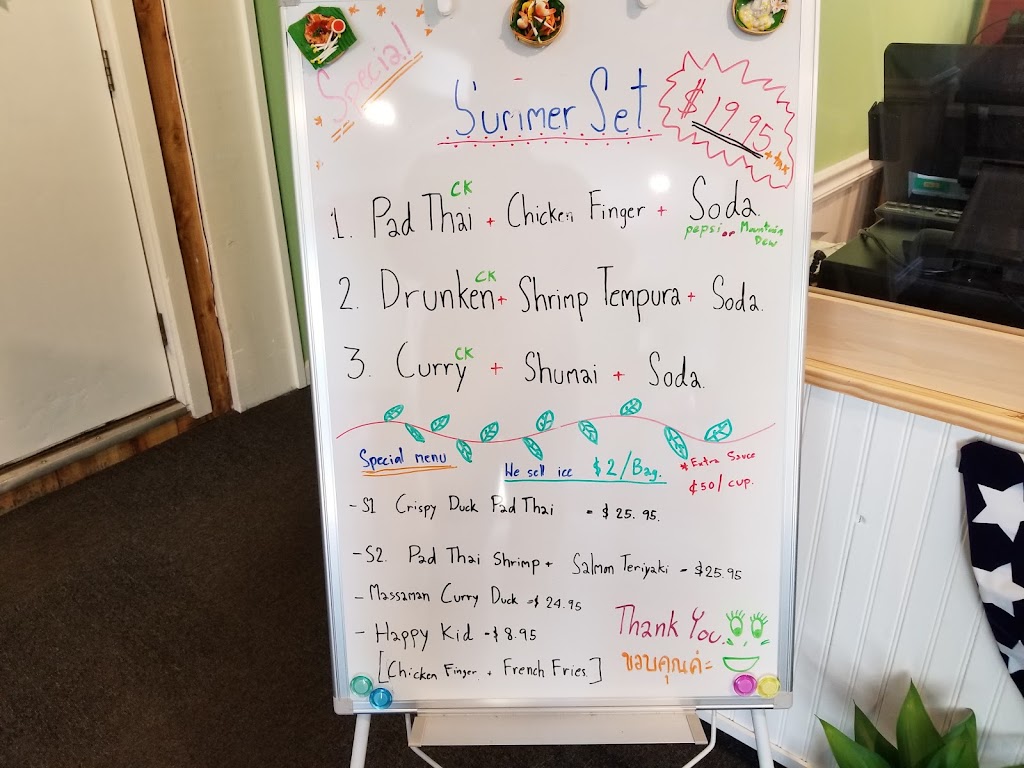 Special
Summer Set
$19.95
+tax
1. Pad Thai CK + Chicken Finger + Soda.
pepsi or Mountain Dew
2. Drunken CK + Shrimp Tempura + Soda.
3. Curry CK + Shumai + Soda.
Special menu
We sell ice $2/Bag.
*Extra Sauce
¢50/cup.
- S1 Crispy Duck Pad Thai - $25.95.
- S2. Pad Thai Shrimp + Salmon Teriyaki - $25.95
- Massaman Curry Duck - $24.95
- Happy Kid - $8.95
[Chicken Finger + French Fries]
Thank You.
ขอบคุณค่ะ